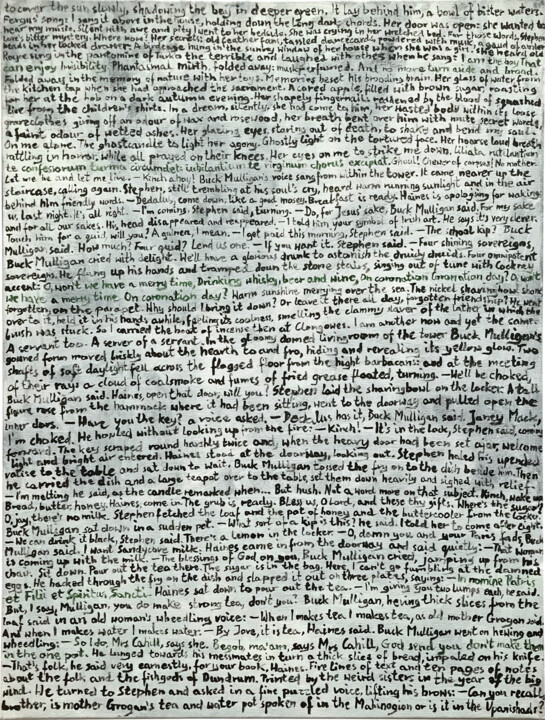 to cover the sun slowly, shadowing the bay in deeper green. It lay behind him, a bowl of bitter waters.
Fergus' song: I sang it above in the house, holding down the long dark chords. Her door was open: she wanted to
hear my music. Silent with awe and pity I went to her bedside. She was crying in her wretched bed. For those words, Stephen:
love's bitter mystery. Where now? Her secrets: old feather fans, tasselled dancecards, powdered with musk, a gaud of amber
beads in her locked drawer. A birdcage hung in the sunny window of her house when she was a girl. She heard old
Royce sing in the pantomime of Turko the terrible and laughed with others when he sang: I am the boy That
can enjoy Invisibility. Phantasmal mirth, folded away: muskperfumed. And no more turn aside and brood.
Folded away in the memory of nature with her toys. Memories beset his brooding brain. Her glass of water from
the kitchen tap when she had approached the sacrament. A cored apple, filled with brown sugar, roasting
for her at the hob on a dark autumn evening. Her shapely fingernails reddened by the blood of squashed
lice from the children's shirts. In a dream, silently, she had come to him, her wasted body within its loose
graveclothes giving off an odour of wax and rosewood, her breath bent over him with mute secret words,
a faint odour of wetted ashes. Her glazing eyes, staring out of death, to shake and bend my soul.
On me alone. The ghostcandle to light her agony. Ghostly light on the tortured face. Her hoarse loud breath
rattling in horror, while all prayed on their knees. Her eyes on me to strike me down. Liliata rutilantium
te confessorum turma circumdet: iubilantium te virginum chorus excipiat. Ghoul! Chewer of corpses! No mother.
Let me be and let me live. — Kinch ahoy! Buck Mulligan's voice sang from within the tower. It came nearer up the
staircase, calling again. Stephen, still trembling at his soul's cry, heard warm running sunlight and in the air
behind him friendly words. — Dedalus, come down, like a good mosey. Breakfast is ready. Haines is apologising for waking
us last night. It's all right. — I'm coming, Stephen said, turning. — Do, for Jesus' sake, Buck Mulligan said. For my sake
and for all our sakes. His head disappeared and reappeared. — I told him your symbol of Irish art. He says it's very clever.
Touch him for a quid, will you? A guinea, I mean. — I get paid this morning, Stephen said. — The school kip? Buck
Mulligan said. How much? Four quid? Lend us one. — If you want it, Stephen said. — Four shining sovereigns,
Buck Mulligan cried with delight. We'll have a glorious drunk to astonish the druidy druids. Four omnipotent
sovereigns. He flung up his hands and tramped down the stone stairs, singing out of tune with Cockney
accent: O, won't we have a merry time, Drinking whisky, beer and wine, On coronation Coronation day! O, won't
we have a merry time On coronation day? Warm sunshine merrying over the sea. The nickel shavingbowl shone,
forgotten, on the parapet. Why should I bring it down? Or leave it there all day, forgotten friendship? He went
over to it, held it in his hands awhile, feeling its coolness, smelling the clammy slaver of the lather in which the
brush was stuck. So I carried the boat of incense then at Clongowes. I am another now and yet the same.
A servant too. A server of a servant. In the gloomy domed livingroom of the tower Buck Mulligan's
gowned form moved briskly about the hearth to and fro, hiding and revealing its yellow glow. Two
shafts of soft daylight fell across the flagged floor from the high barbacans: and at the meeting
of their rays a cloud of coalsmoke and fumes of fried grease floated, turning. — We'll be choked,
Buck Mulligan said. Haines, open that door, will you? Stephen laid the shavingbowl on the locker. A tall
figure rose from the hammock where it had been sitting, went to the doorway and pulled open the
inner doors. — Have you the key? a voice asked. — Dedalus has it, Buck Mulligan said. Janey Mack,
I'm choked. He howled without looking up from the fire: — Kinch! — It's in the lock, Stephen said, coming
forward. The key scraped round harshly twice and, when the heavy door had been set ajar, welcome
light and bright air entered. Haines stood at the doorway, looking out. Stephen haled his upended
valise to the table and sat down to wait. Buck Mulligan tossed the fry on to the dish beside him. Then
he carried the dish and a large teapot over to the table, set them down heavily and sighed with relief.
— I'm melting, he said, as the candle remarked when... But hush. Not a word more on that subject. Kinch, wake up.
Bread, butter, honey. Haines, come in. The grub is ready. Bless us, O Lord, and these thy gifts. Where's the sugar?
O, jay, there's no milk. Stephen fetched the loaf and the pot of honey and the buttercooler from the locker.
Buck Mulligan sat down in a sudden pet. — What sort of a kip is this? he said. I told her to come after eight.
— We can drink it black, Stephen said. There's a lemon in the locker. — O, damn you and your Paris fads, Buck
Mulligan said. I want Sandycove milk. Haines came in from the doorway and said quietly: — That woman
is coming up with the milk. — The blessings of God on you, Buck Mulligan cried, jumping up from his
chair. Sit down. Pour out the tea there. The sugar is in the bag. Here, I can't go fumbling at the damned
eggs. He hacked through the fry on the dish and slapped it out on three plates, saying: — In nomine Patris
et Filii et Spiritus Sancti. Haines sat down to pour out the tea. — I'm giving you two lumps each, he said.
But, I say, Mulligan, you do make strong tea, don't you? Buck Mulligan, hewing thick slices from the
loaf said in an old woman's wheedling voice: — When I makes tea I makes tea, as old mother Grogan said.
And when I makes water I makes water. — By Jove, it is tea, Haines said. Buck Mulligan went on hewing and
wheedling: — So I do, Mrs Cahill, says she. Begob, ma'am, says Mrs Cahill, God send you don't make them
in the one pot. He lunged towards his messmates in turn a thick slice of bread, impaled on his knife.
— That's folk, he said very earnestly, for your book, Haines. Five lines of text and ten pages of notes
about the folk and the fishgods of Dundrum. Printed by the weird sisters in the year of the big
wind. He turned to Stephen and asked in a fine puzzled voice, lifting his brows: — Can you recall,
brother, is mother Grogan's tea and water pot spoken of in the Mabinogion or is it in the Upanishads?